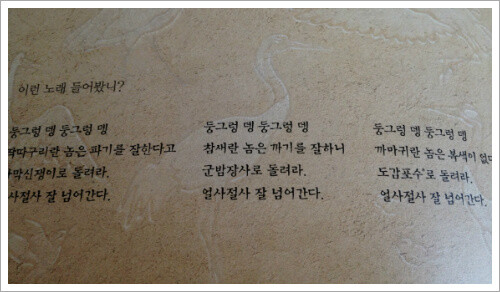 이런 노래 들어봤니?
둥그렁 뎅 둥그렁 뎅
딱따구리란 놈은 파기를 잘한다고
막신쟁이로 돌려라.
사절사 잘 넘어간다.
둥그렁 뎅 둥그렁 뎅
참새란 놈은 까기를 잘하니
군밤장사로 돌려라.
얼사절사 잘 넘어간다.
둥그렁 뎅 둥그렁 뎅
까마귀란 놈은 복색이 없다
도감포수'로 돌려라.
얼사절사 잘 넘어간다.